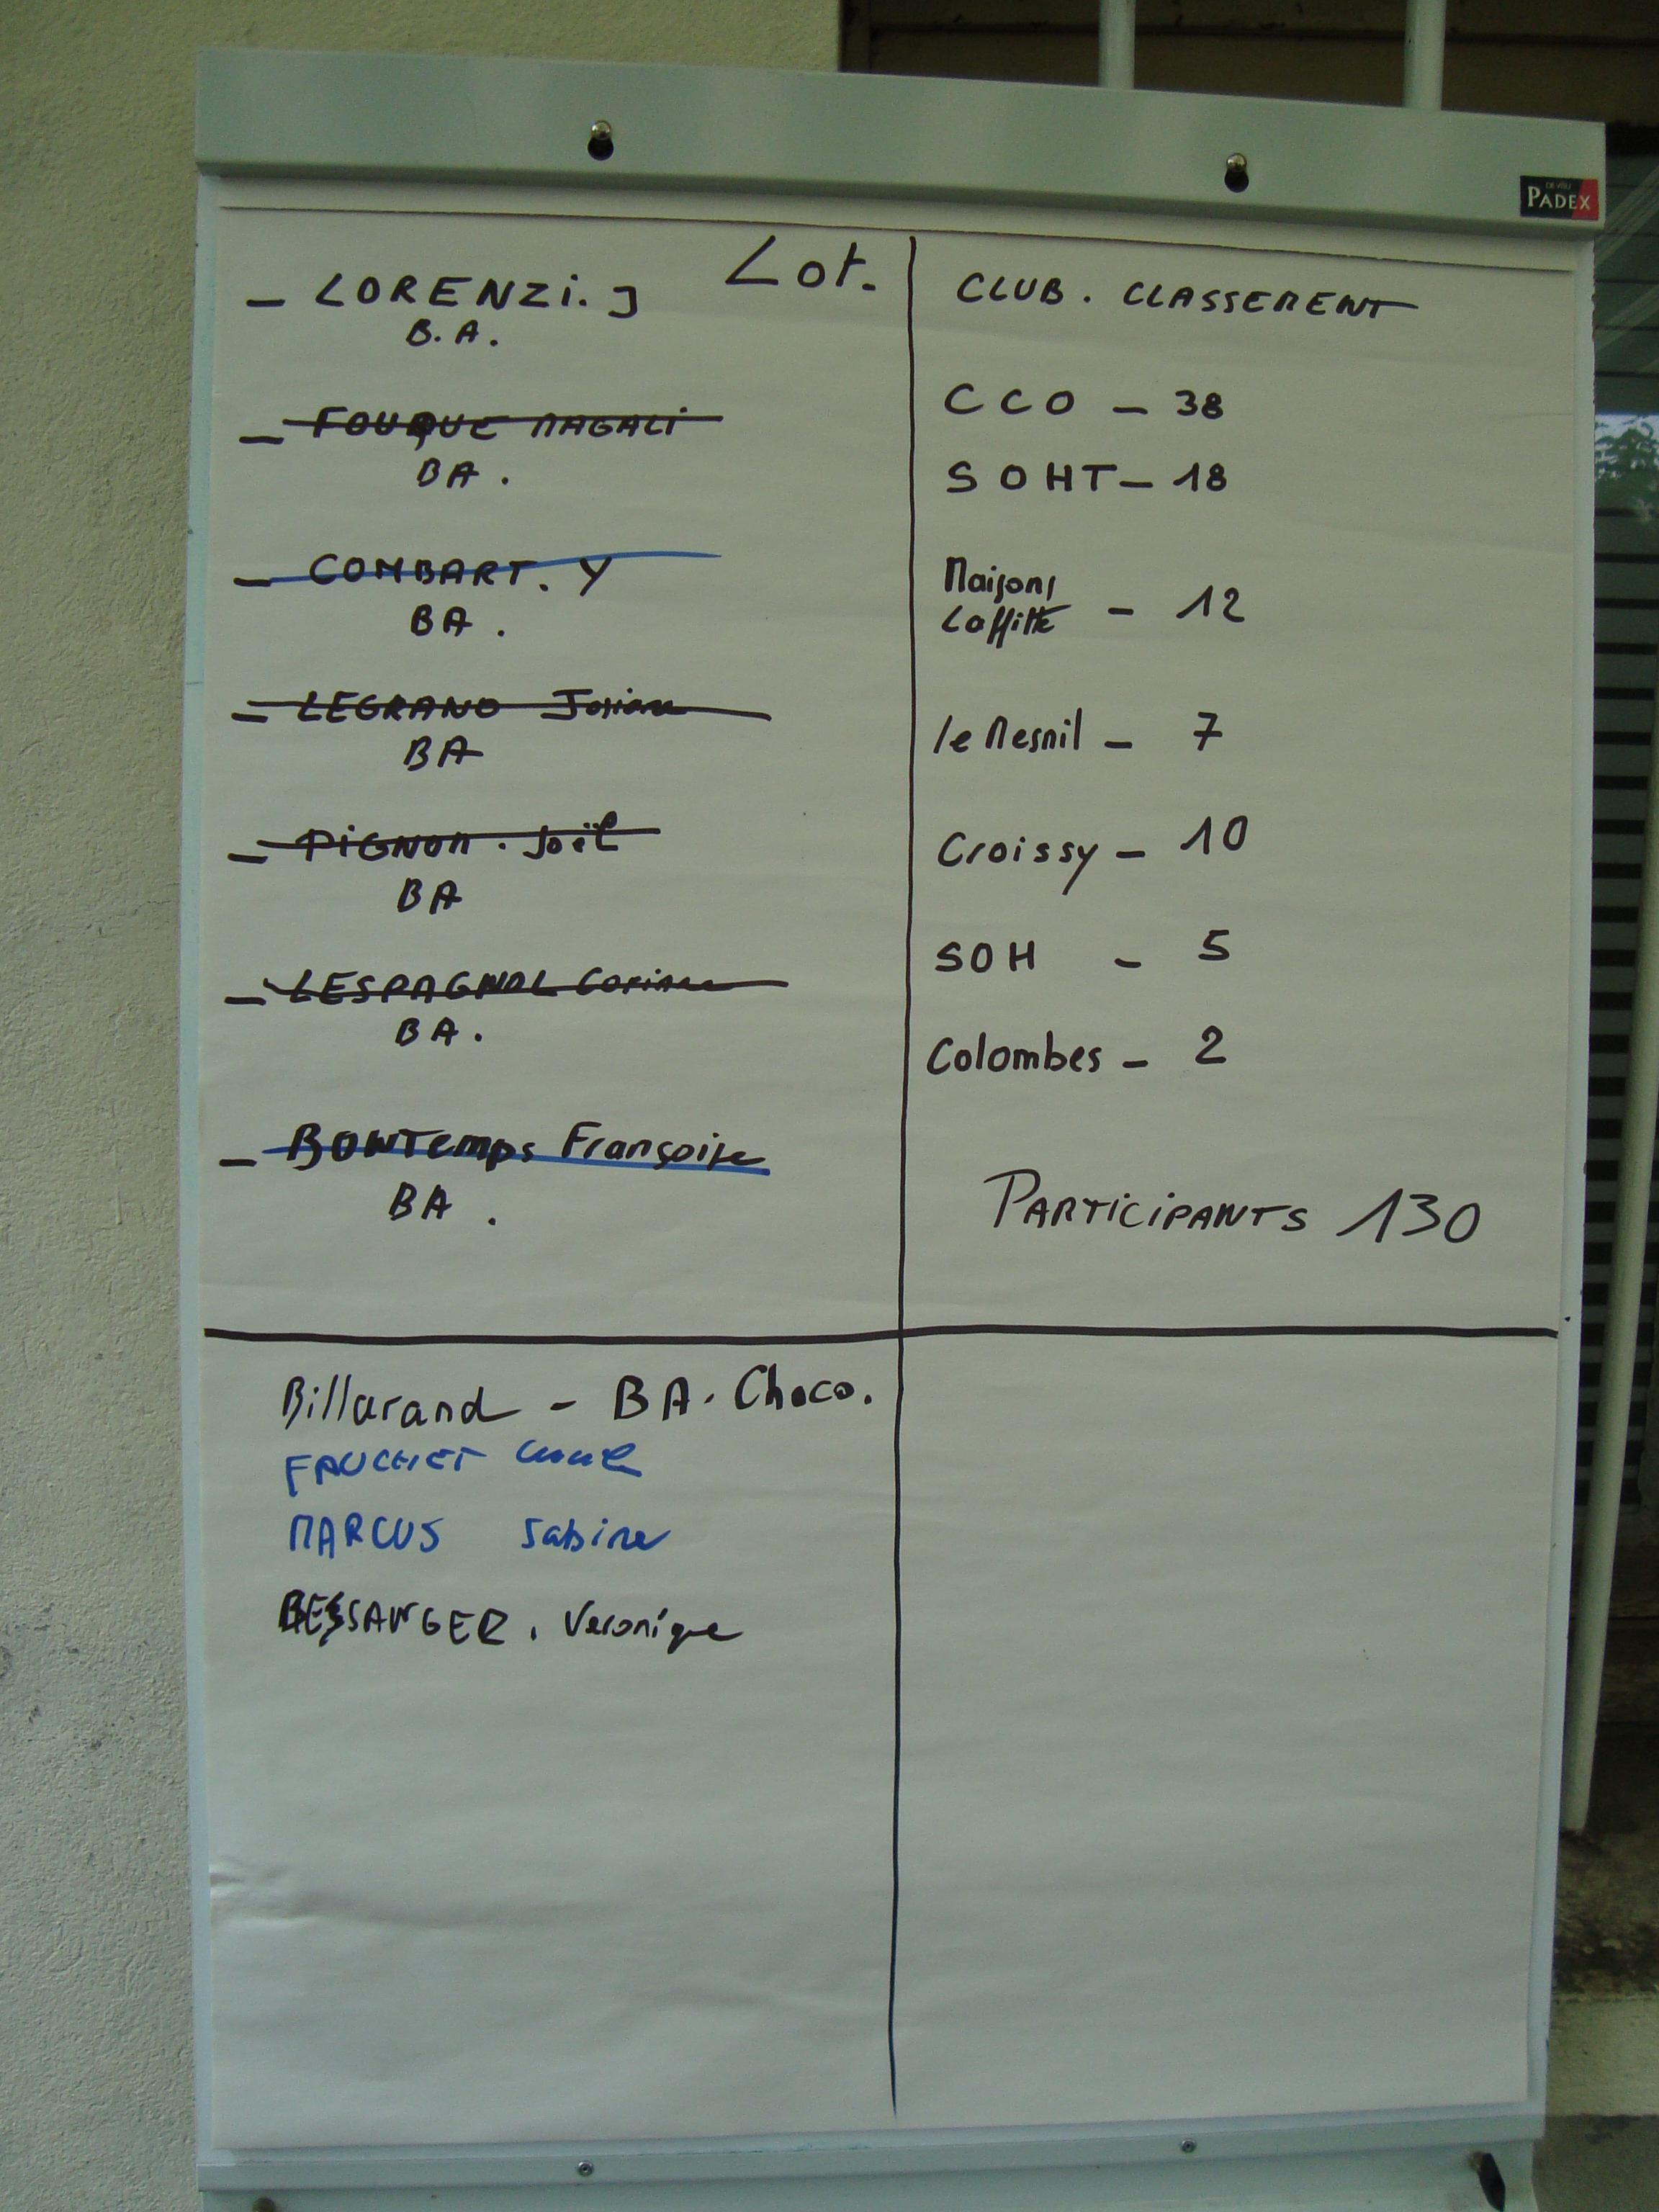 PADEX
Lot.
— LORENZi. J
B.A.
— FOUQUE MAGALi
BA.
— COMBART. Y
BA.
— LEGRAND Josiane
BA
— PiGNON. Joël
BA
— LESPAGNOL
BA.
— BONTemps Françoise
BA.
CLUB. CLASSEMENT
CCO — 38
SOHT — 18
Maisons
Laffitte — 12
le Mesnil — 7
Croissy — 10
SOH — 5
Colombes — 2
PARTiCiPANTS 130
Billarand - BA. Choco.
FAUCHET
MARCUS Sabine
BESSANGER. Veronique